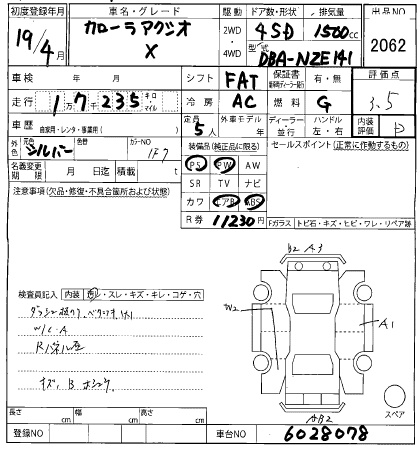 初度登録年月 車名・グレード 駆動 ドア数・形状 排気量 出品NO
19/4月 カローラアクシオ X 2WD・4WD 4SD 1500cc 2062
型式 DBA-NZE141
車検 年 月 シフト FAT 保証書 有・無 評価点
走行 1万7千235 キロ・マイル 冷房 AC 燃料 G 3.5
車歴 自家用・レンタ・事業用( ) 定員 5人 外車モデル 年 ディーラー・並行 ハンドル 左・右 内装評価 D
外色 元色 シルバー 色替 カラーNO 1F7 装備品(純正品に限る) セールスポイント(正常に作動するもの)
名義変更期限 月 日迄 積載 t PS PW AW
注意事項(欠品・修復・不具合箇所および状態) SR TV ナビ
カワ エアB ABS
R券 11230円 Fガラス トビ石・キズ・ヒビ・ワレ・リペア跡
B2 A3
検査員記入 内装 ・スレ・キズ・キレ・コゲ・穴
W2
A1
W/C.A
キズ、B
AB2
スペア
長さ cm 幅 cm 高さ cm
登録NO 車台NO 6028078